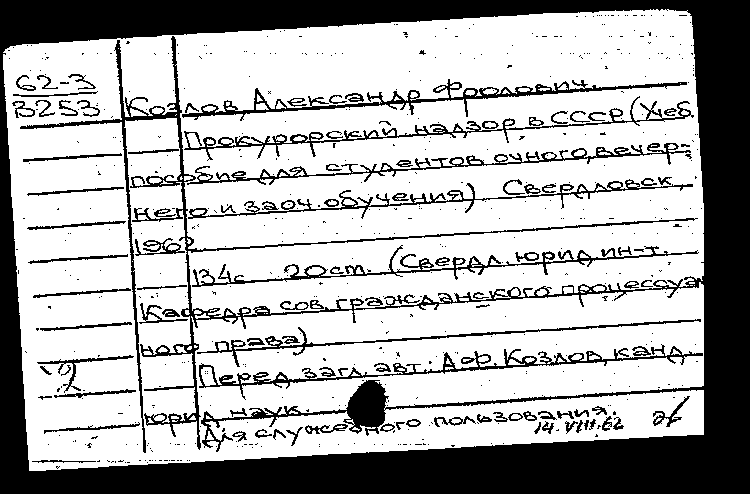 62-3
3253
Козлов, Александр Фролович.
Прокурорский надзор в СССР (Учеб.
пособие для студентов очного, вечер-
него и заоч. обучения) Свердловск,
1962
134с 20 cm. (Свердл. юрид. ин-т.
Кафедра сов. гражданского процессуаль
ного права).
Перед загл. авт.: А.Ф. Козлов, канд.
2
юрид. наук.
Для служебного пользования.
14.VIII.62